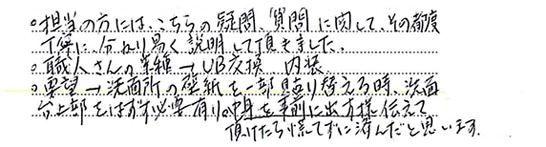 ○担当の方には、こちらの疑問、質問に関して、その都度
丁寧に、分かり易く説明して頂きました。
○職人さんの業績→UB交換 内装
○要望→洗面所の壁紙を一部貼り替える時、洗面
台上部をはずす必要有りの事を事前に出方様伝えて
頂けたら慌てずに済んだと思います。